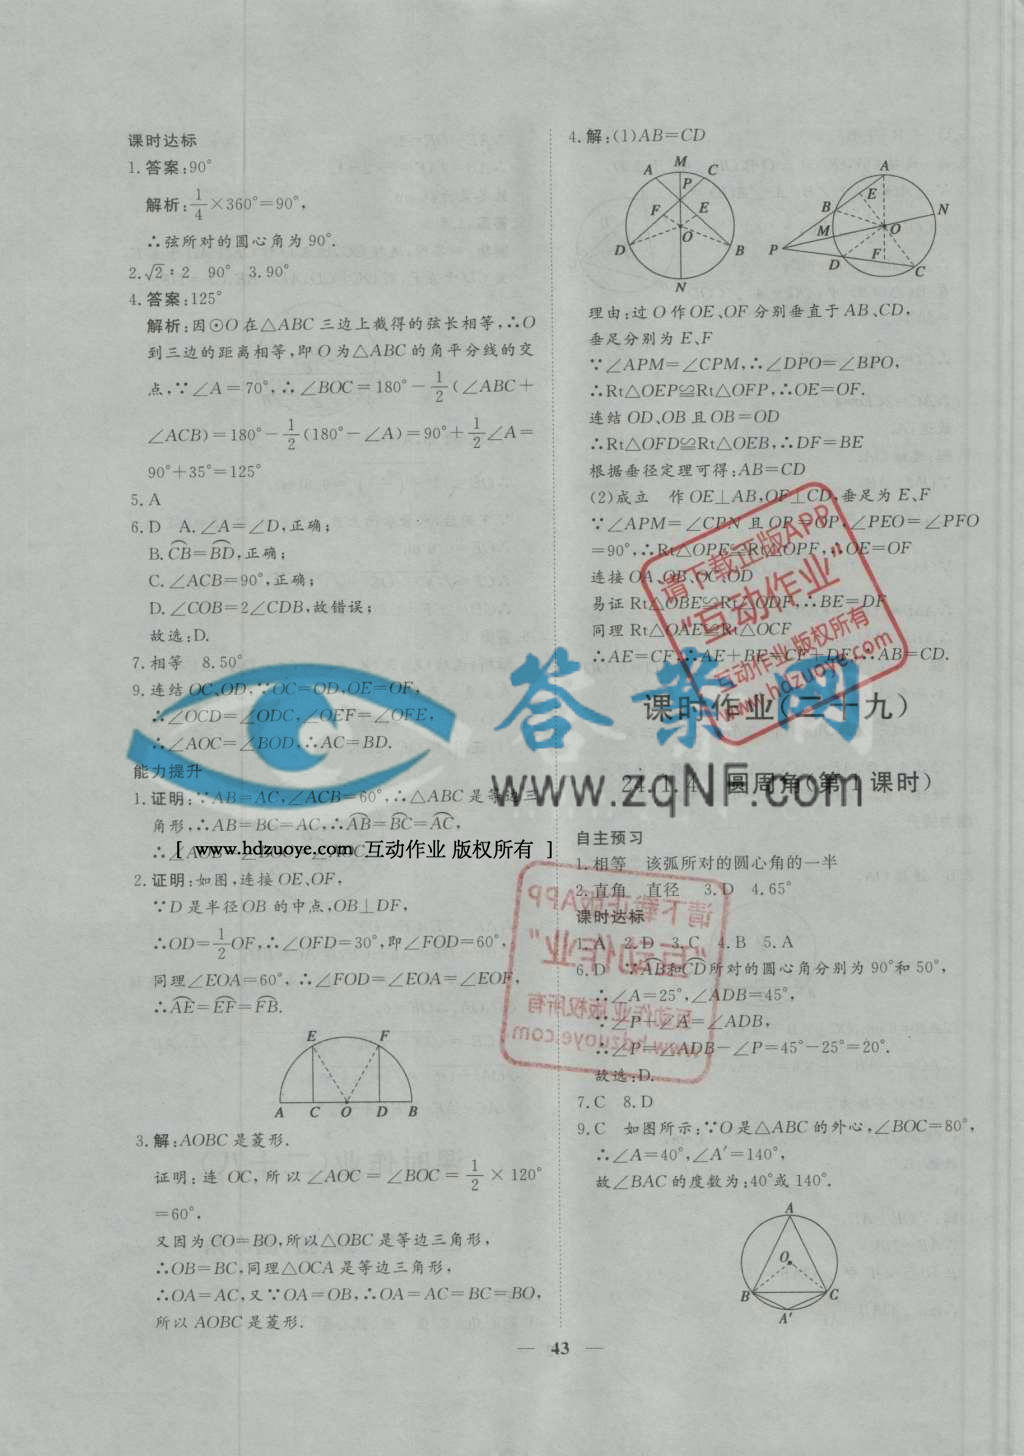 课时达标
1.答案:90°
解析:1/4×360°=90°,
∴弦所对的圆心角为 90°.
2.√2∶2　90°　3.90°
4.答案:125°
解析:因⊙O 在△ABC 三边上截得的弦长相等,∴O
到三边的距离相等,即 O 为△ABC 的角平分线的交
点,∵∠A=70°,∴∠BOC=180°-1/2(∠ABC+
∠ACB)=180°-1/2(180°-∠A)=90°+1/2∠A=
90°+35°=125°
5.A
6.D　A.∠A=∠D,正确;
B.C͡B=B͡D,正确;
C.∠ACB=90°,正确;
D.∠COB=2∠CDB,故错误;
故选:D.
7.相等　8.50°
9.连结 OC、OD,∵OC=OD,OE=OF,
∴∠OCD=∠ODC,∠OEF=∠OFE,
∴∠AOC=∠BOD.∴AC=BD.
能力提升
1.证明:∵AB=AC,∠ACB=60°,∴△ABC 是等边三
角形,∴AB=BC=AC,∴A͡B=B͡C=A͡C,
∴∠AOB=∠BOC=∠AOC
[ www.hdzuoye.com 互动作业 版权所有 ]
2.证明:如图,连接 OE、OF,
∵D 是半径 OB 的中点,OB⊥DF,
∴OD=1/2OF,∴∠OFD=30°,即∠FOD=60°,
同理∠EOA=60°,∴∠FOD=∠EOA=∠EOF,
∴A͡E=E͡F=F͡B.
E F
A C O D B
3.解:AOBC 是菱形.
证明:连 OC,所以∠AOC=∠BOC=1/2×120°
=60°.
又因为 CO=BO,所以△OBC 是等边三角形,
∴OB=BC,同理△OCA 是等边三角形,
∴OA=AC,又∵OA=OB,∴OA=AC=BC=BO,
所以 AOBC 是菱形.
4.解:(1)AB=CD
A M C P F E O D B N
A E B N M O P D F C
理由:过 O 作 OE、OF 分别垂直于 AB、CD,
垂足分别为 E、F
∵∠APM=∠CPM,∴∠DPO=∠BPO,
∴Rt△OEP≌Rt△OFP,∴OE=OF.
连结 OD、OB 且 OB=OD
∴Rt△OFD≌Rt△OEB,∴DF=BE
根据垂径定理可得:AB=CD
(2)成立　作 OE⊥AB,OF⊥CD,垂足为 E、F
∵∠APM=∠CPN 且 OP=OP,∠PEO=∠PFO
=90°,∴Rt△OPE≌Rt△OPF,∴OE=OF
连接 OA、OB、OC、OD
易证 Rt△OBE≌Rt△ODF,∴BE=DF
同理 Rt△OAE≌Rt△OCF
∴AE=CF∴AE+BE=CF+DF∴AB=CD.
请下载正版APP
“互动作业”
互动作业 版权所有
www.hdzuoye.com
答案网
www.zqNF.com
课时作业(二十九)
24.1.4　圆周角(第1课时)
自主预习
1.相等　该弧所对的圆心角的一半
2.直角　直径　3.D　4.65°
课时达标
1.A　2.D　3.C　4.B　5.A
6.D　∵A͡B和C͡D所对的圆心角分别为 90°和 50°,
∴∠A=25°,∠ADB=45°,
∵∠P+∠A=∠ADB,
∴∠P=∠ADB-∠P=45°-25°=20°.
故选:D.
请下载正版APP
“互动作业”
互动作业 版权所有
www.hdzuoye.com
7.C　8.D
9.C　如图所示:∵O 是△ABC 的外心,∠BOC=80°,
∴∠A=40°,∠A'=140°,
故∠BAC 的度数为:40°或 140°.
A
O
B C
A'
— 43 —